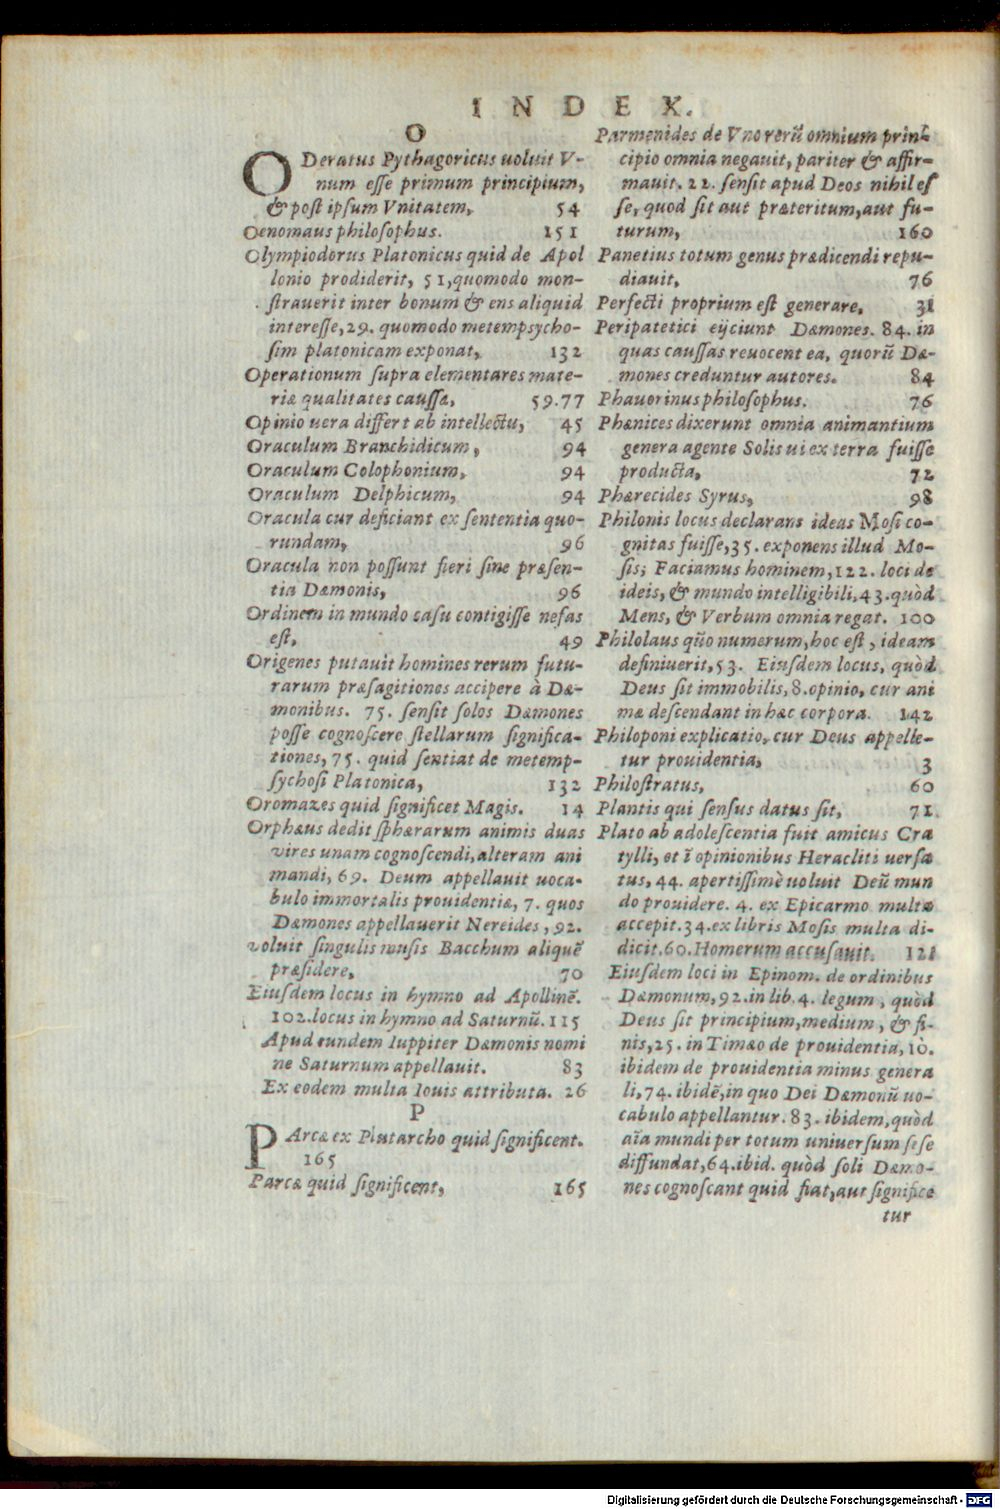 INDEX.
O
ODeratus Pythagoricus uoluit V-
num esse primum principium,
& post ipsum Vnitatem, 54
Oenomaus philosophus. 151
Olympiodorus Platonicus quid de Apol
lonio prodiderit, 51, quomodo mon-
strauerit inter bonum & ens aliquid
interesse, 29. quomodo metempsycho-
sim platonicam exponat, 132
Operationum supra elementares mate-
riæ qualitates caussæ, 59.77
Opinio uera differt ab intellectu, 45
Oraculum Branchidicum, 94
Oraculum Colophonium, 94
Oraculum Delphicum, 94
Oracula cur deficiant ex sententia quo-
rundam, 96
Oracula non possunt fieri sine præsen-
tia Dæmonis, 96
Ordinem in mundo casu contigisse nefas
est, 49
Origenes putauit homines rerum futu-
rarum præsagitiones accipere à Dæ-
monibus. 75. sensit solos Dæmones
posse cognoscere stellarum significa-
tiones, 75. quid sentiat de metemp-
sychosi Platonica, 132
Oromazes quid significet Magis. 14
Orphæus dedit sphærarum animis duas
vires unam cognoscendi, alteram ani
mandi, 69. Deum appellauit uoca-
bulo immortalis prouidentiæ, 7. quos
Dæmones appellauerit Nereides, 92.
voluit singulis musis Bacchum aliquẽ
præsidere, 70
Eiusdem locus in hymno ad Apollinẽ.
102. locus in hymno ad Saturnũ. 115
Apud eundem Iuppiter Dæmonis nomi
ne Saturnum appellauit. 83
Ex eodem multa Iouis attributa. 26
P
PArcæ ex Plutarcho quid significent.
165
Parcæ quid significent, 165
Parmenides de Vno rerũ omnium prin-
cipio omnia negauit, pariter & affir-
mauit. 22. sensit apud Deos nihil es
se, quod sit aut præteritum, aut fu-
turum, 160
Panetius totum genus prædicendi repu-
diauit, 76
Perfecti proprium est generare, 31
Peripatetici eijciunt Dæmones. 84. in
quas caussas reuocent ea, quorũ Dæ-
mones creduntur autores. 84
Phauorinus philosophus. 76
Phænices dixerunt omnia animantium
genera agente Solis ui ex terra fuisse
producta, 72
Phærecides Syrus, 98
Philonis locus declarans ideas Mosi co-
gnitas fuisse, 35. exponens illud Mo-
sis; Faciamus hominem, 122. loci de
ideis, & mundo intelligibili, 43. quòd
Mens, & Verbum omnia regat. 100
Philolaus quõ numerum, hoc est, ideam
definiuerit, 53. Eiusdem locus, quòd
Deus sit immobilis, 8. opinio, cur ani
mæ descendant in hæc corpora. 142
Philoponi explicatio, cur Deus appelle-
tur prouidentia, 3
Philostratus, 60
Plantis qui sensus datus sit, 71.
Plato ab adolescentia fuit amicus Cra
tylli, et ĩ opinionibus Heracliti uersa
tus, 44. apertissimè uoluit Deũ mun
do prouidere. 4. ex Epicarmo multa
accepit. 34. ex libris Mosis multa di-
dicit. 60. Homerum accusauit. 121
Eiusdem loci in Epinom. de ordinibus
Dæmonum, 92. in lib. 4. legum, quòd
Deus sit principium, medium, & fi-
nis, 25. in Timæo de prouidentia, 10.
ibidem de prouidentia minus genera
li, 74. ibidẽ, in quo Dei Dæmonũ uo-
cabulo appellantur. 83. ibidem, quòd
aĩa mundi per totum uniuersum sese
diffundat, 64. ibid. quòd soli Dæmo-
nes cognoscant quid fiat, aut significe
tur
Digitalisierung gefördert durch die Deutsche Forschungsgemeinschaft - DFG